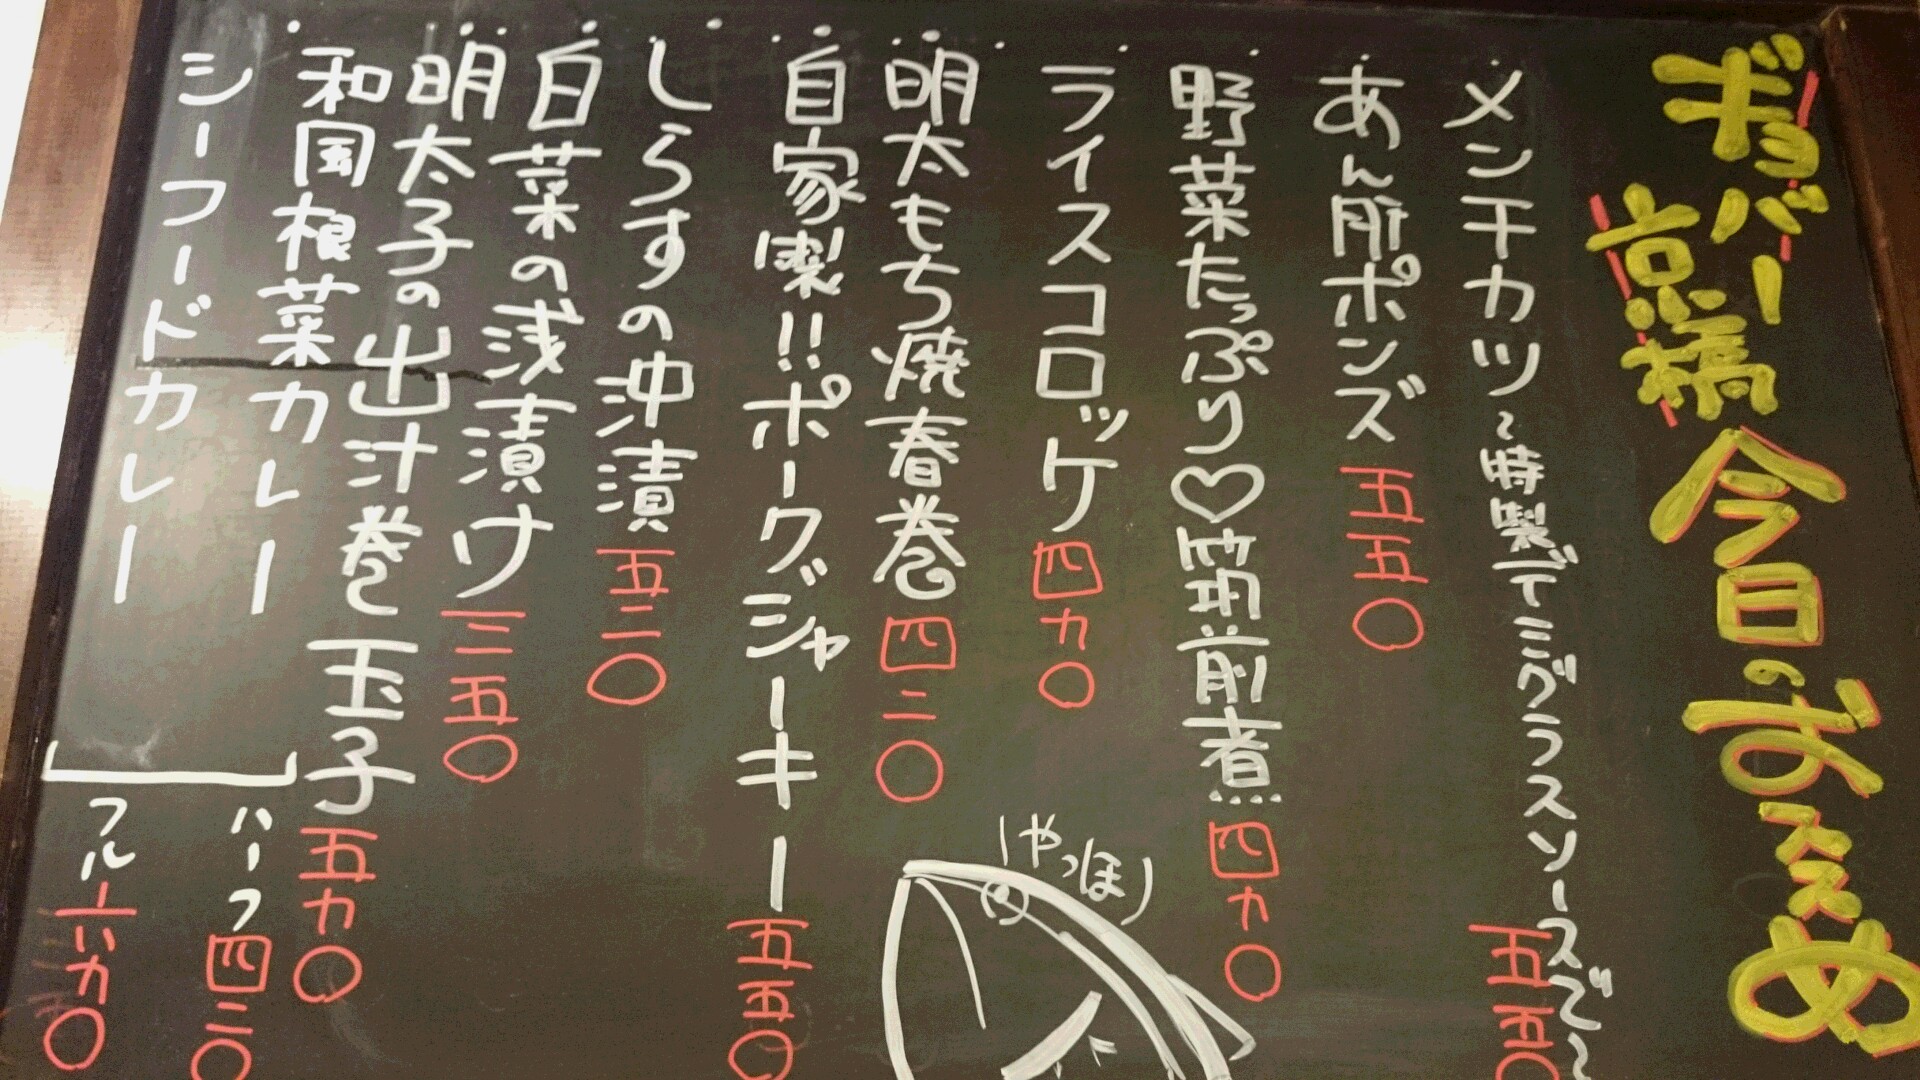 ギョバー京橋 今日のおススめ
メンチカツ〜特製デミグラスソースで〜 五五〇
あん肝ポンズ 五五〇
野菜たっぷり♡筑前煮 四九〇
ライスコロッケ 四九〇
明太もち焼春巻 四二〇
自家製!!ポークジャーキー 五五〇
しらすの沖漬 五二〇
白菜の浅漬け 三五〇
明太子の出汁巻玉子 五九〇
和国根菜カレー
シーフードカレー
ハーフ 四二〇
フル 六九〇
やっほー